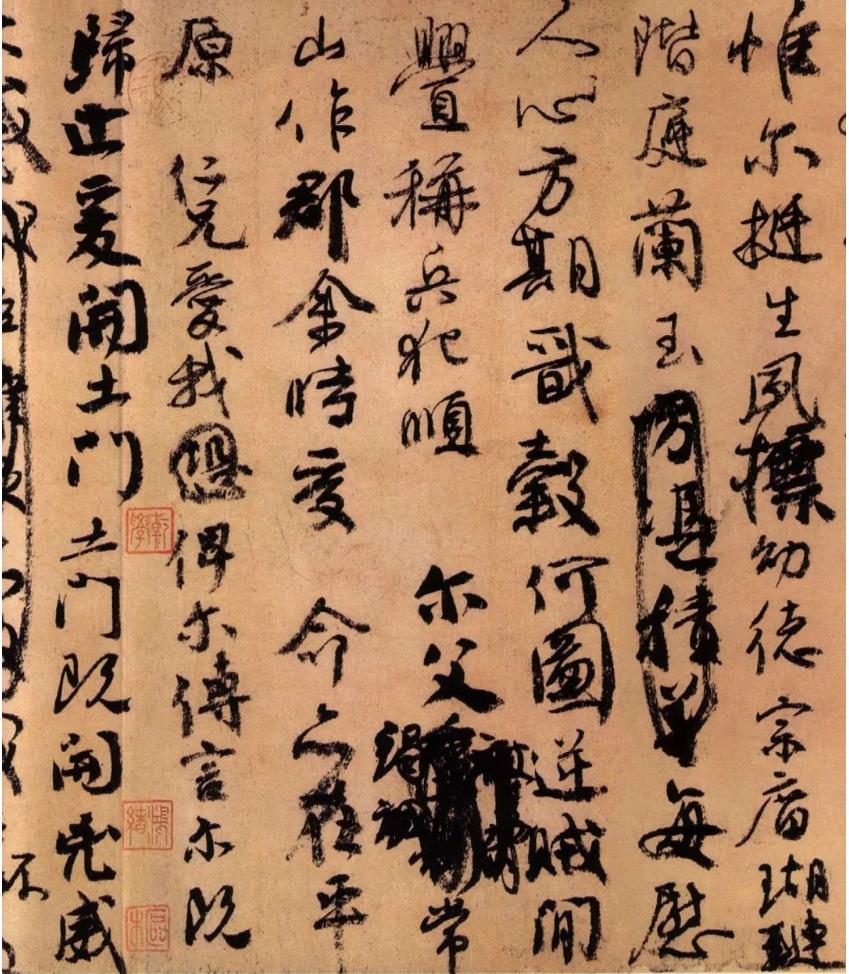 惟尔挺生夙標幼德宗廟瑚璉
階庭蘭玉方憑積善每慰
人心方期戩穀何圖逆賊閒
釁稱兵犯順尔父竭誠常
山作郡余時受命亦在平
原仁兄愛我恐俾尔傳言尔既
歸止爰開土門土門既開兇威